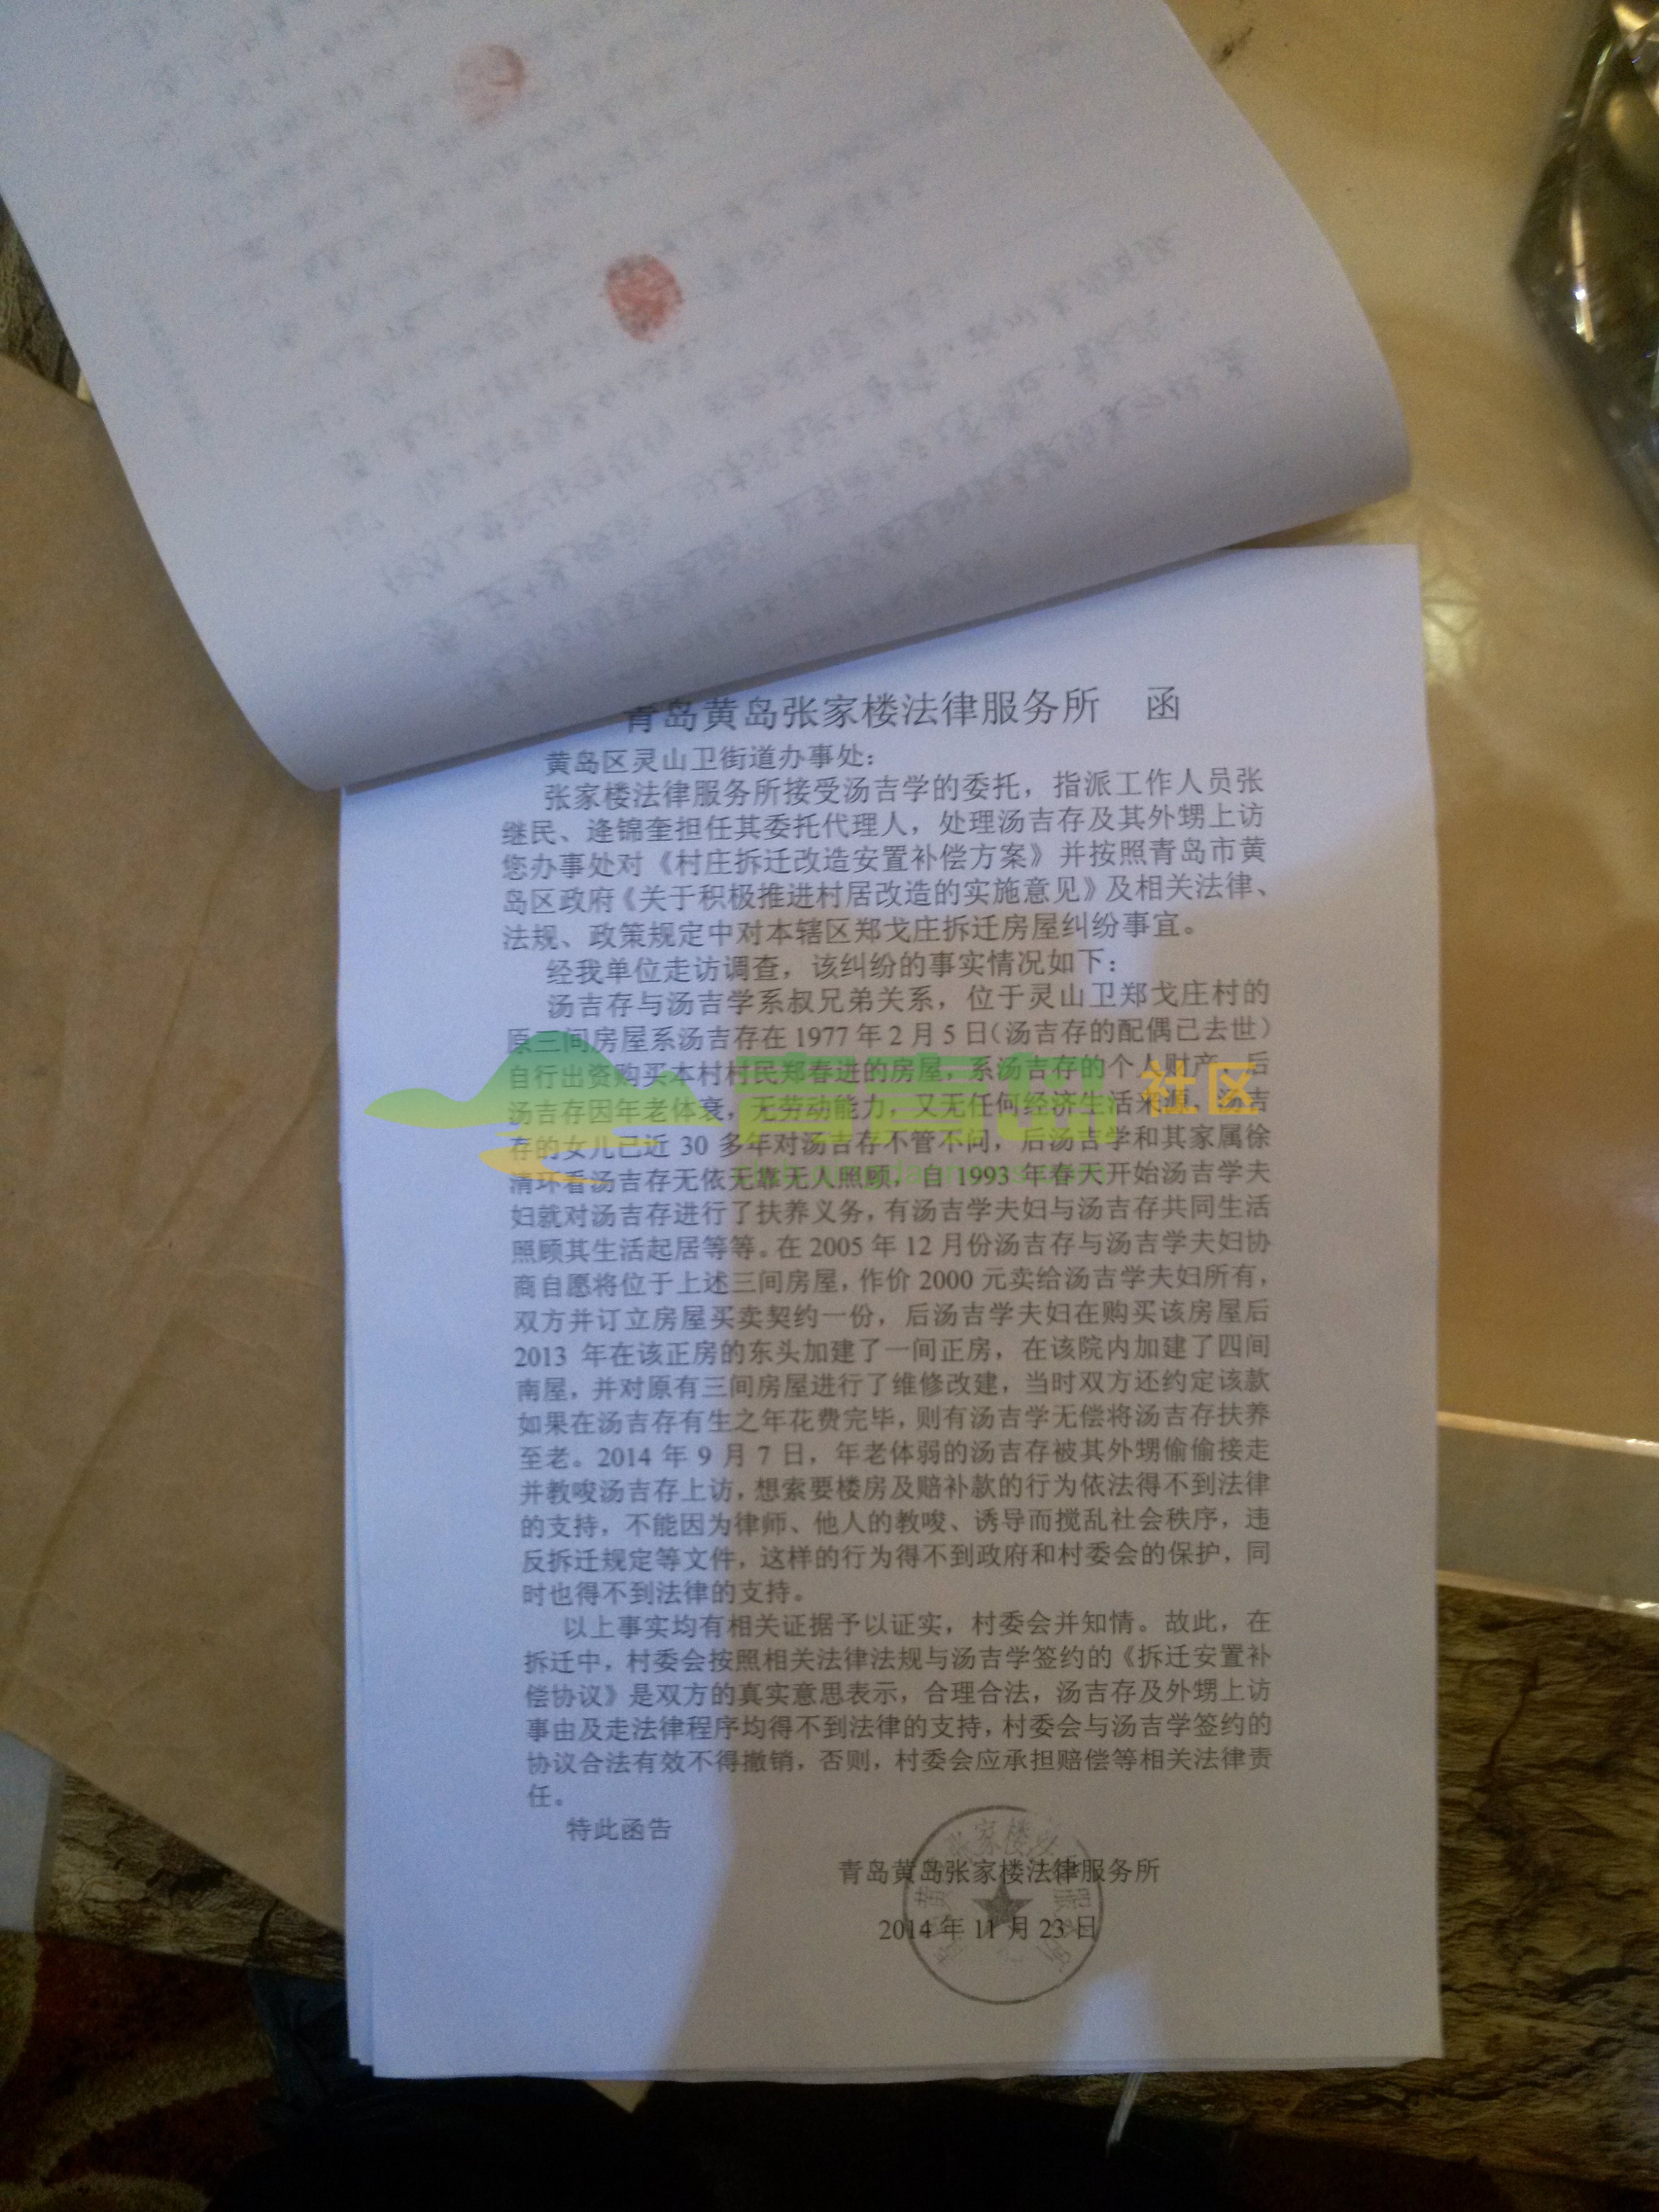 青岛黄岛张家楼法律服务所 函
黄岛区灵山卫街道办事处：
张家楼法律服务所接受汤吉学的委托，指派工作人员张
继民、逄锦奎担任其委托代理人，处理汤吉存及其外甥上访
您办事处对《村庄拆迁改造安置补偿方案》并按照青岛市黄
岛区政府《关于积极推进村居改造的实施意见》及相关法律、
法规、政策规定中对本辖区郑戈庄拆迁房屋纠纷事宜。
经我单位走访调查，该纠纷的事实情况如下：
汤吉存与汤吉学系叔兄弟关系，位于灵山卫郑戈庄村的
原三间房屋系汤吉存在1977年2月5日（汤吉存的配偶已去世）
自行出资购买本村村民郑春进的房屋，系汤吉存的个人财产，后
汤吉存因年老体衰，无劳动能力，又无任何经济生活来源，汤吉
存的女儿已近30多年对汤吉存不管不问，后汤吉学和其家属徐
清环看汤吉存无依无靠无人照顾，自1993年春天开始汤吉学夫
妇就对汤吉存进行了扶养义务，有汤吉学夫妇与汤吉存共同生活
照顾其生活起居等等。在2005年12月份汤吉存与汤吉学夫妇协
商自愿将位于上述三间房屋，作价2000元卖给汤吉学夫妇所有，
双方并订立房屋买卖契约一份，后汤吉学夫妇在购买该房屋后
2013年在该正房的东头加建了一间正房，在该院内加建了四间
南屋，并对原有三间房屋进行了维修改建，当时双方还约定该款
如果在汤吉存有生之年花费完毕，则有汤吉学无偿将汤吉存扶养
至老。2014年9月7日，年老体弱的汤吉存被其外甥偷偷接走
并教唆汤吉存上访，想索要楼房及赔补款的行为依法得不到法律
的支持，不能因为律师、他人的教唆、诱导而搅乱社会秩序，违
反拆迁规定等文件，这样的行为得不到政府和村委会的保护，同
时也得不到法律的支持。
以上事实均有相关证据予以证实，村委会并知情。故此，在
拆迁中，村委会按照相关法律法规与汤吉学签约的《拆迁安置补
偿协议》是双方的真实意思表示，合理合法，汤吉存及外甥上访
事由及走法律程序均得不到法律的支持，村委会与汤吉学签约的
协议合法有效不得撤销，否则，村委会应承担赔偿等相关法律责
任。
特此函告
青岛黄岛张家楼法律服务所
2014年11月23日
青青岛 社区